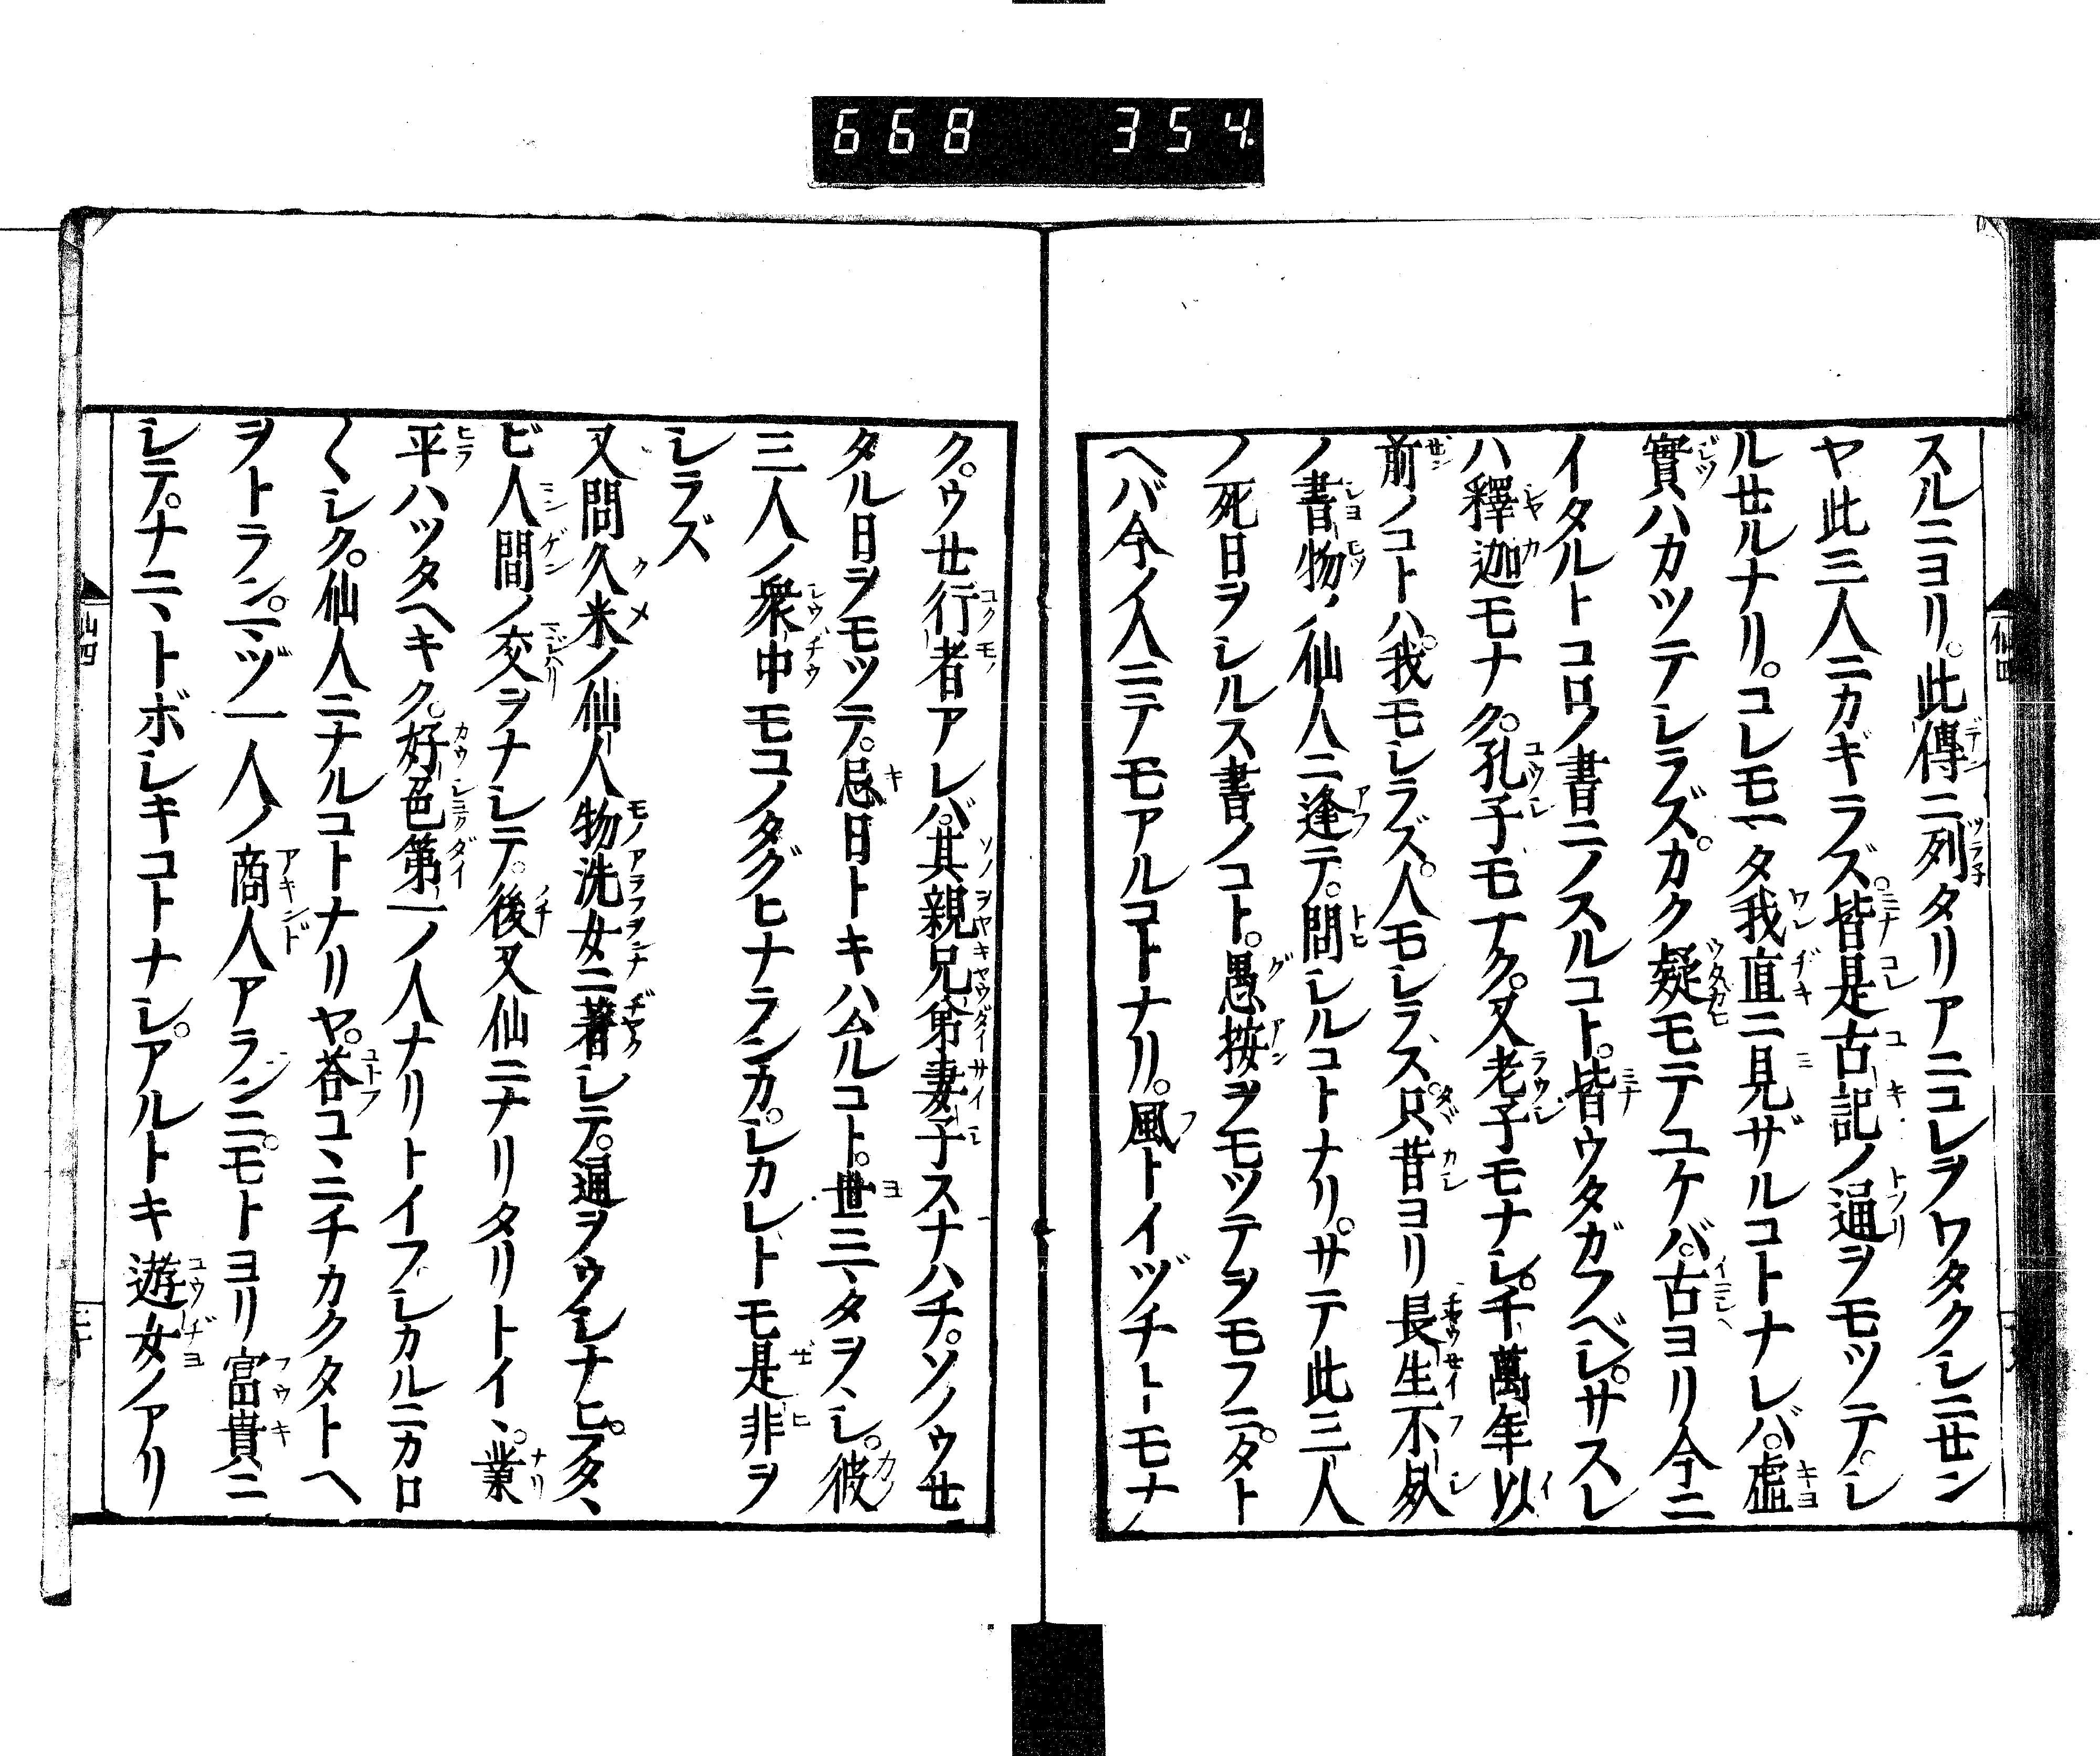 668 354
スルニヨリ。此傳ニ列タリアニコレヲワタクシニせン
ヤ此三人ニカギラズ。皆是古記ノ通ヲモツテ。シ
ルせルナリ。コレモ一、タ我直ニ見ザルコトナレバ。虚
實ハカツテシラズ。カク疑モテユケバ。古ヨリ今ニ
イタルトコロノ書ニノスルコト。皆ウタガフベシ。サスレ
ハ釋迦モナク。孔子モナク。又老子モナシ。千萬年以
前ノコトハ。我モシラズ。人モシラス。只昔ヨリ長生不死
ノ書物ノ仙人ニ逢テ。問シルコトナリ。サテ此三人
ノ死日ヲシルス書ノコト。愚按ヲモツテヲモフニ。タト
ヘバ今ノ人ニテモアルコトナリ。風トイヅチトーモナ
ク。ウせ行者アレバ。其親兄弟妻子スナハチ。ソノウせ
タル日ヲモツテ。忌日トキハムルコト。世ニ、タヲヽシ。彼
三人ノ衆中モコノタグヒナランカ。シカレトモ是非ヲ
シラズ
又問久米ノ仙人物洗女ニ著シテ。通ヲウシナヒ。フタヽ
ビ人間ノ交ヲナシテ。後又仙ニナリタリトイヽ。業
平ハツタヘキク。好色第一ノ人ナリトイフ。シカルニカロ
〱シク。仙人ニナルコトナリヤ。荅コヽニチカクタトヘ
ヲトラン。一、ヅ一人ノ商人アランニ。モトヨリ富貴ニ
シテ。ナニヽトボシキコトナシ。アルトキ遊女ノアリ
仙四